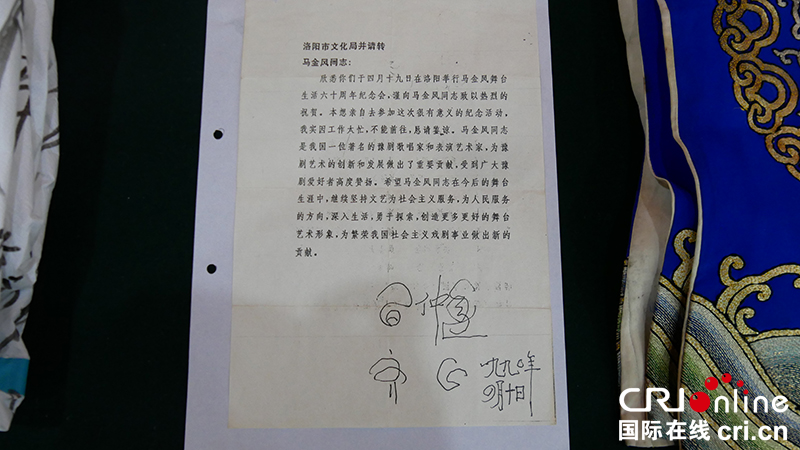 洛阳市文化局并请转
马金凤同志：
欣悉你们于四月十九日在洛阳举行马金凤舞台
生活六十周年纪念会，谨向马金凤同志致以热烈的
祝贺。本想亲自去参加这次很有意义的纪念活动，
我实因工作大忙，不能前往，恳请鉴谅。马金凤同志
是我国一位著名的豫剧歌唱家和表演艺术家，为豫
剧艺术的创新和发展做出了重要贡献，受到广大豫
剧爱好者高度赞扬。希望马金凤同志在今后的舞台
生涯中，继续坚持文艺为社会主义服务，为人民服务
的方向，深入生活，勇于探索，创造更多更好的舞台
艺术形象，为繁荣我国社会主义戏剧事业做出新的
贡献。
一九九〇年
四月十日
CRIOnline
国际在线 cri.cn